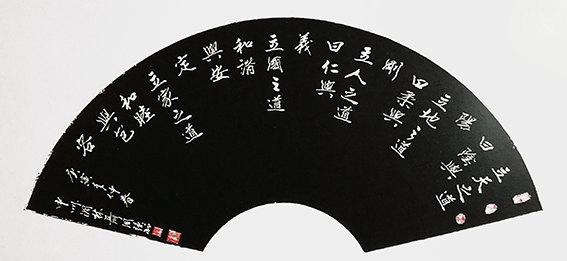 立天之道
曰陰與
陽
立地之道
曰柔與
剛
立人之道
曰仁與
義
立國之道
和諧
與安
定
立家之道
和睦
與包
容
庚寅年仲春